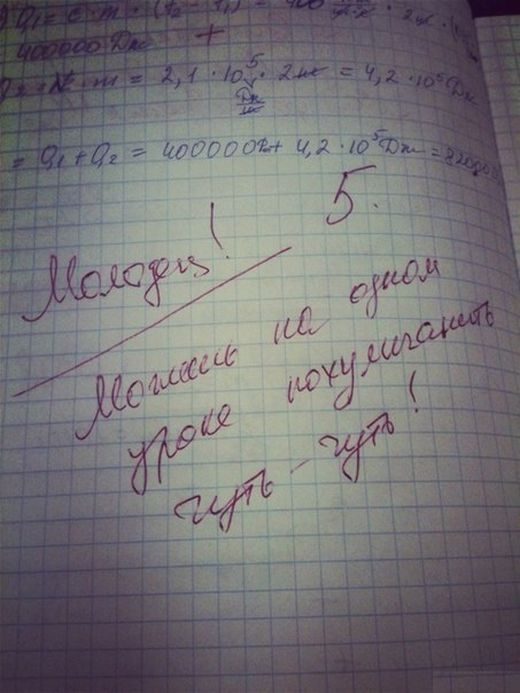 Q₁ = c · m · (t₂ - t₁) = 400 · 2кг ·
400000 Дж +
· m = 2,1 · 10⁵ Дж/кг · 2кг = 4,2 · 10⁵ Дж
= Q₁ + Q₂ = 400000Дж + 4,2 · 10⁵ Дж = 820000
Молодец! 5.
Можешь на одном
уроке похулиганить
чуть-чуть!